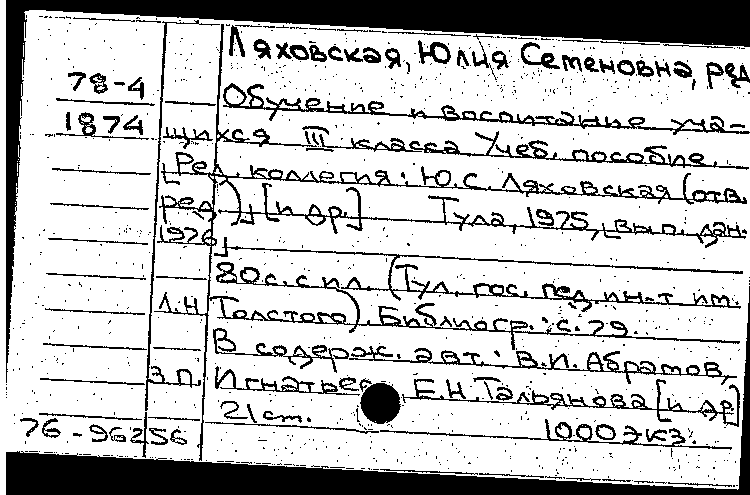 Ляховская, Юлия Семеновна, ред
78-4
1874
Обучение и воспитание уча-
щихся III класса Учеб. пособие.
[Ред. коллегия: Ю.С. Ляховская (отв.
ред.)] [и др.] Тула, 1975, [вып. дан.
1976].
80с. с ил. (Тул. гос. пед. ин-т им.
Л.Н. Толстого). Библиогр.: с. 79.
В содерж. авт.: В.И. Абрамов,
З.П. Игнатьев Е.Н. Тальянова [и др]
21 cm. 1000 экз.
76-96256.